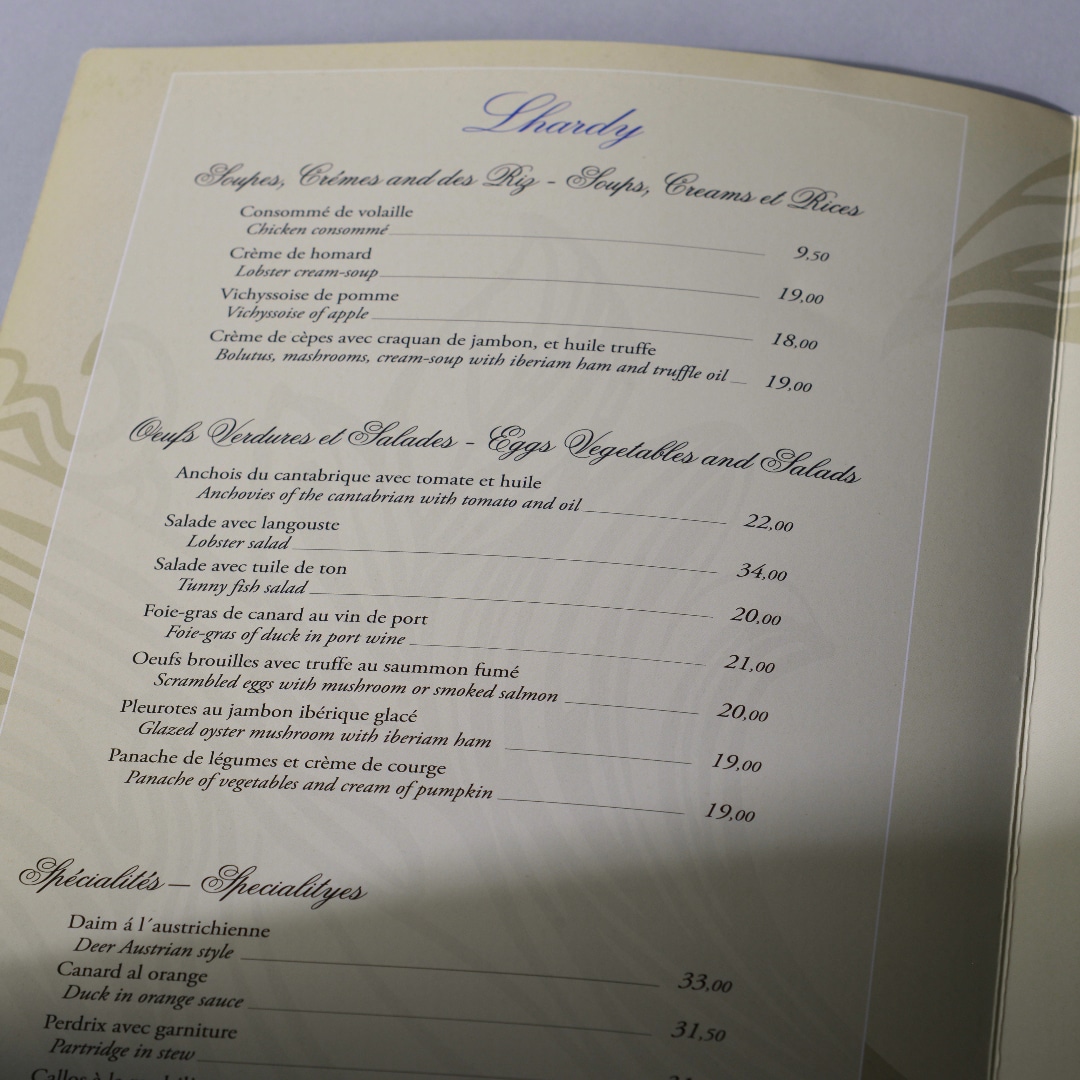 Lhardy
Soupes, Crémes and des Riz - Soups, Creams et Rices
Consommé de volaille
Chicken consommé 9,50
Crème de homard
Lobster cream-soup 19,00
Vichyssoise de pomme
Vichyssoise of apple 18,00
Crème de cèpes avec craquan de jambon, et huile truffe
Bolutus, mashrooms, cream-soup with iberiam ham and truffle oil 19,00
Oeufs Verdures et Salades - Eggs Vegetables and Salads
Anchois du cantabrique avec tomate et huile
Anchovies of the cantabrian with tomato and oil 22,00
Salade avec langouste
Lobster salad 34,00
Salade avec tuile de ton
Tunny fish salad 20,00
Foie-gras de canard au vin de port
Foie-gras of duck in port wine 21,00
Oeufs brouilles avec truffe au saummon fumé
Scrambled eggs with mushroom or smoked salmon 20,00
Pleurotes au jambon ibérique glacé
Glazed oyster mushroom with iberiam ham 19,00
Panache de légumes et crème de courge
Panache of vegetables and cream of pumpkin 19,00
Spécialités – Specialityes
Daim á l´austrichienne
Deer Austrian style 33,00
Canard al orange
Duck in orange sauce 31,50
Perdrix avec garniture
Partridge in stew